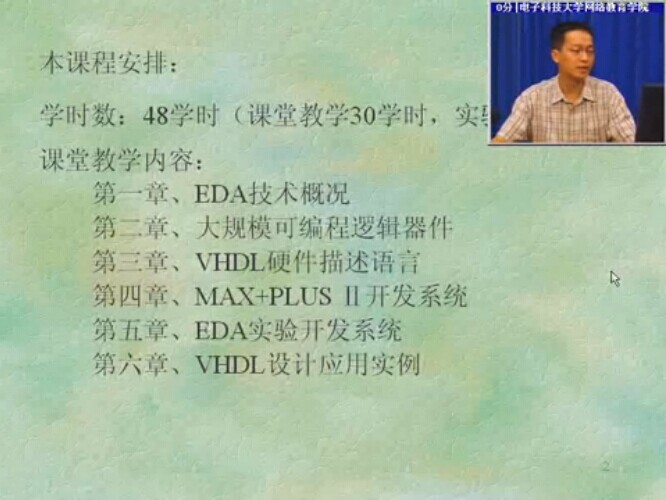 电子科技大学网络教育学院
本课程安排：
学时数：48学时（课堂教学30学时，实
课堂教学内容：
第一章、EDA技术概况
第二章、大规模可编程逻辑器件
第三章、VHDL硬件描述语言
第四章、MAX+PLUS Ⅱ开发系统
第五章、EDA实验开发系统
第六章、VHDL设计应用实例
2